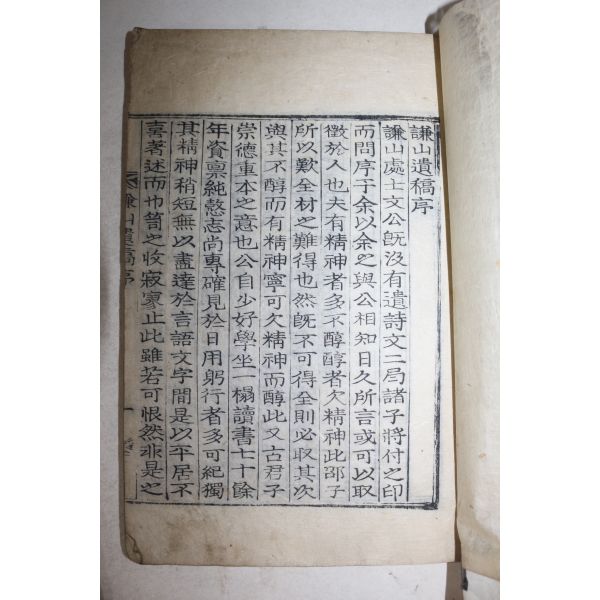 謙山遺稿序
謙山處士文公旣沒有遺詩文二局諸子將付之印
而問序于余以余之與公相知日久所言或可以取
徵於人也夫有精神者多不醇醇者欠精神此邵子
所以歎全材之難得也然旣不可得全則必取其次
與其不醇而有精神寧可欠精神而醇此又古君子
崇德重本之意也公自少好學坐一榻讀書七十餘
年資禀純慤志尚專確見於日用躬行者多可紀獨
其精神稍短無以盡達於言語文字間是以平居不
喜著述而巾笥之收寂寥止此雖若可恨然非是之
謙山遺稿序
一